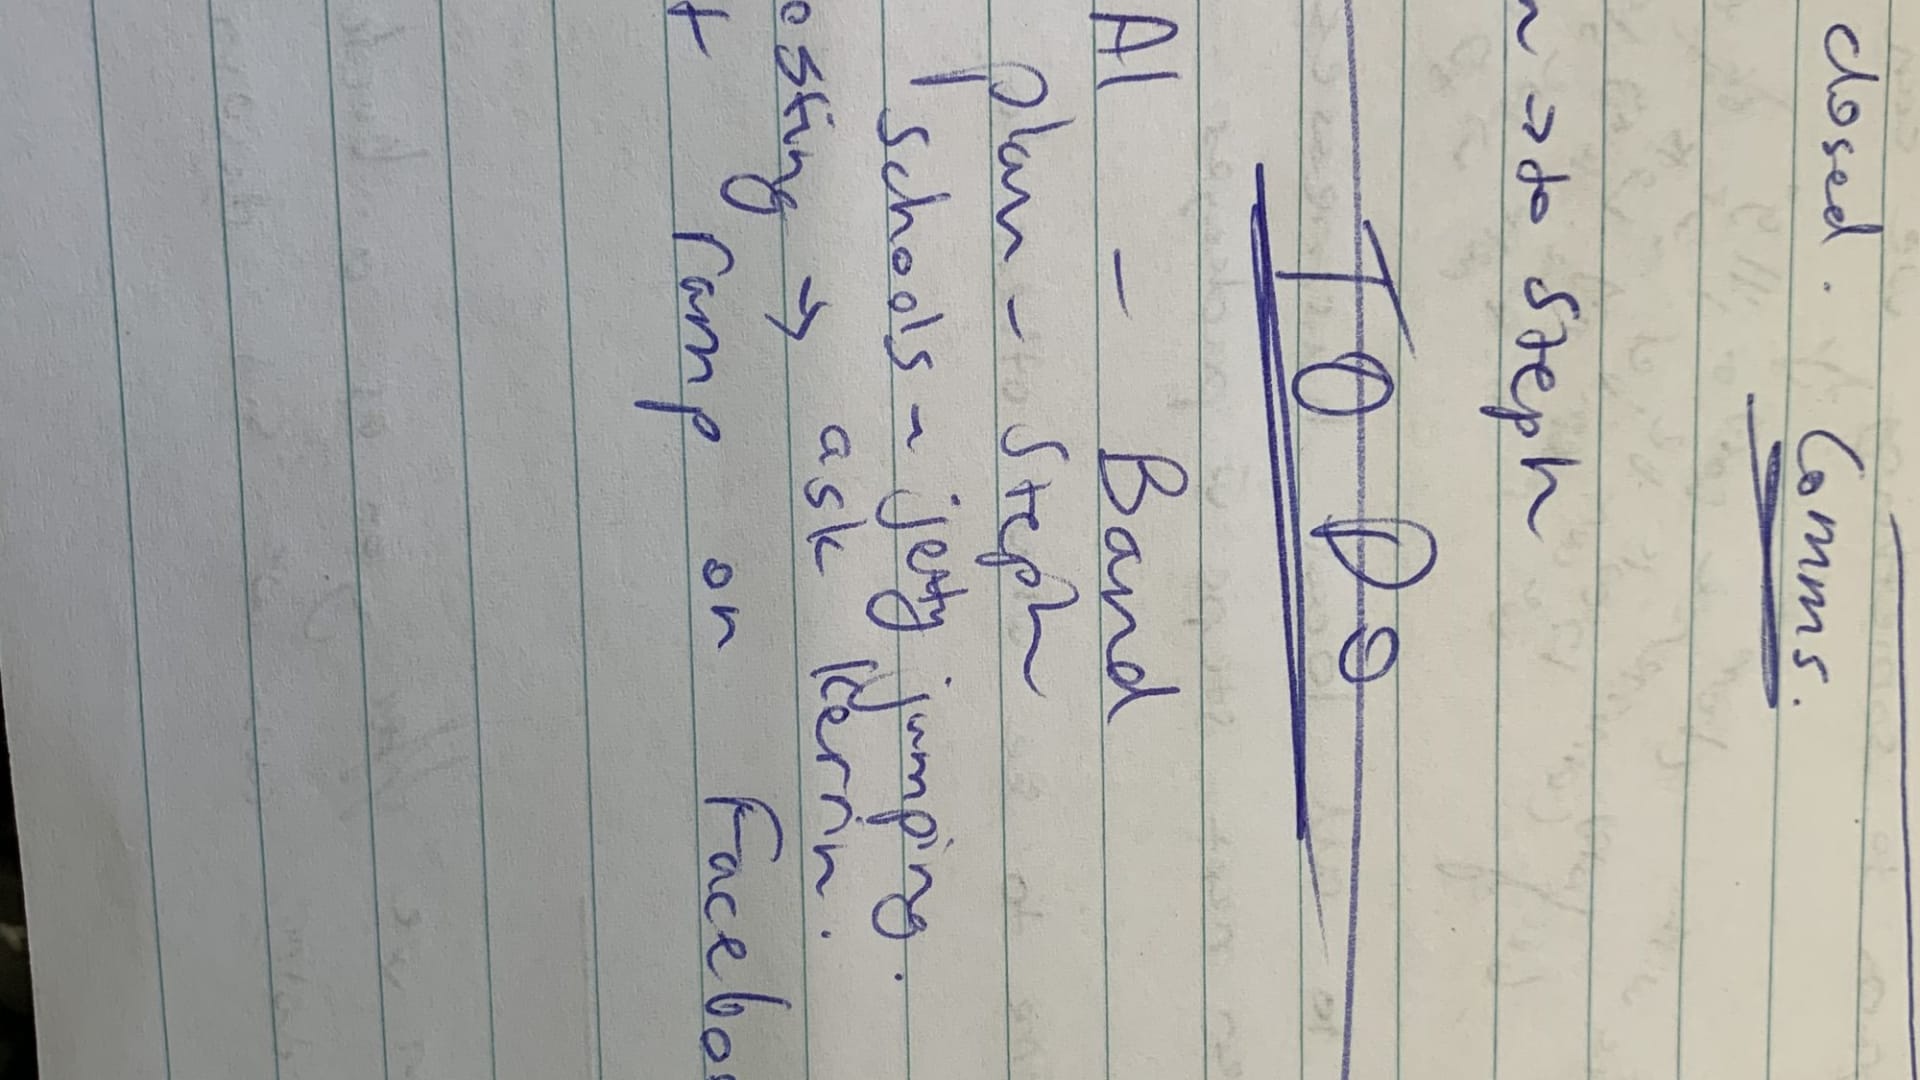 closed. Comms.
n → to Steph
TO Do
Al - Band
plan - Steph
schools - jetty jumping.
osting → ask Kerrin.
t ramp on Facebo